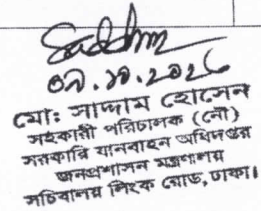 Saddam
০৯.১০.২০২৫
মো: সাদ্দাম হোসেন
সহকারী পরিচালক (নৌ)
সরকারি যানবাহন অধিদপ্তর
জনপ্রশাসন মন্ত্রণালয়
সচিবালয় লিংক রোড, ঢাকা।